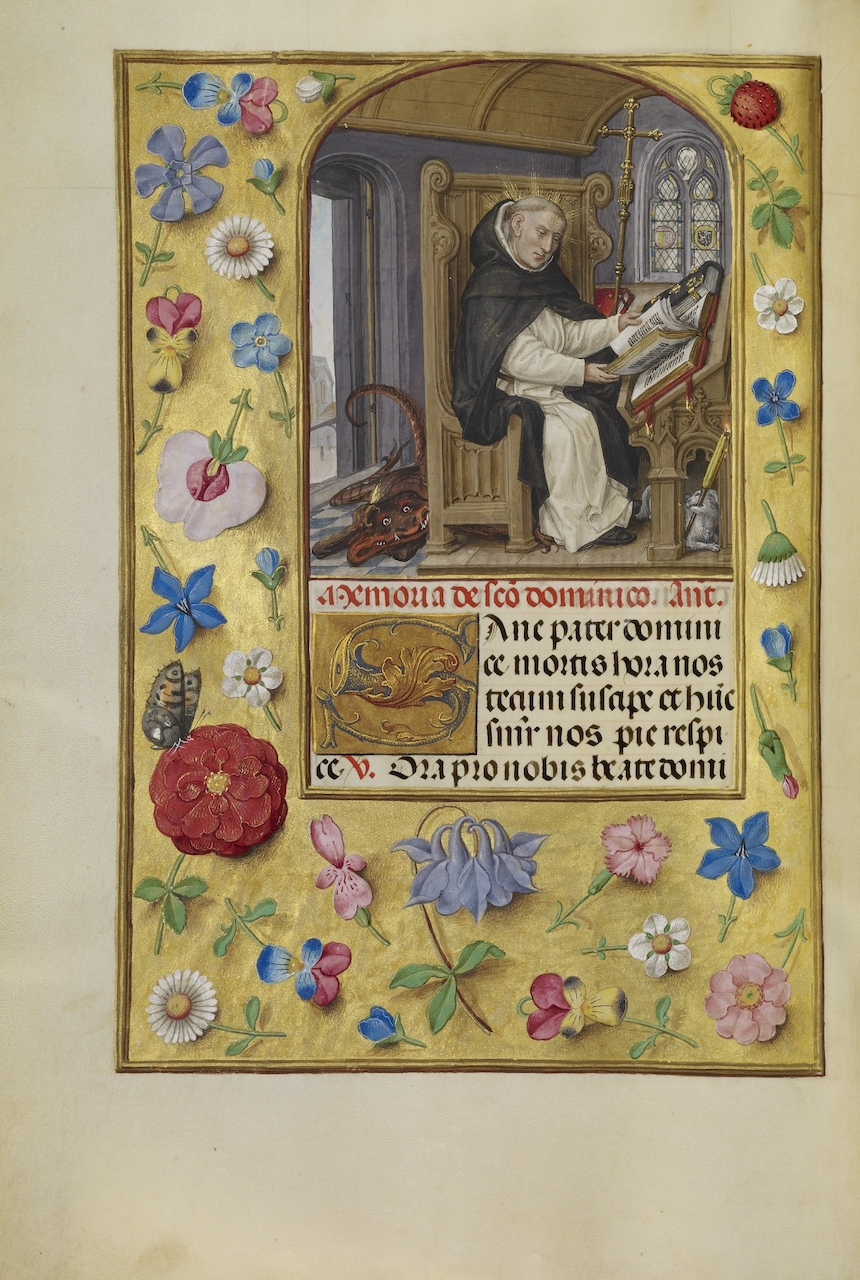 Memoria de sc̄o dominico. Ant̄.
Ane pater domini
ce mortis hora nos
tecum suscipe et hic̄
semꝑ nos pie respi
ce. V. Ora pro nobis beate domi